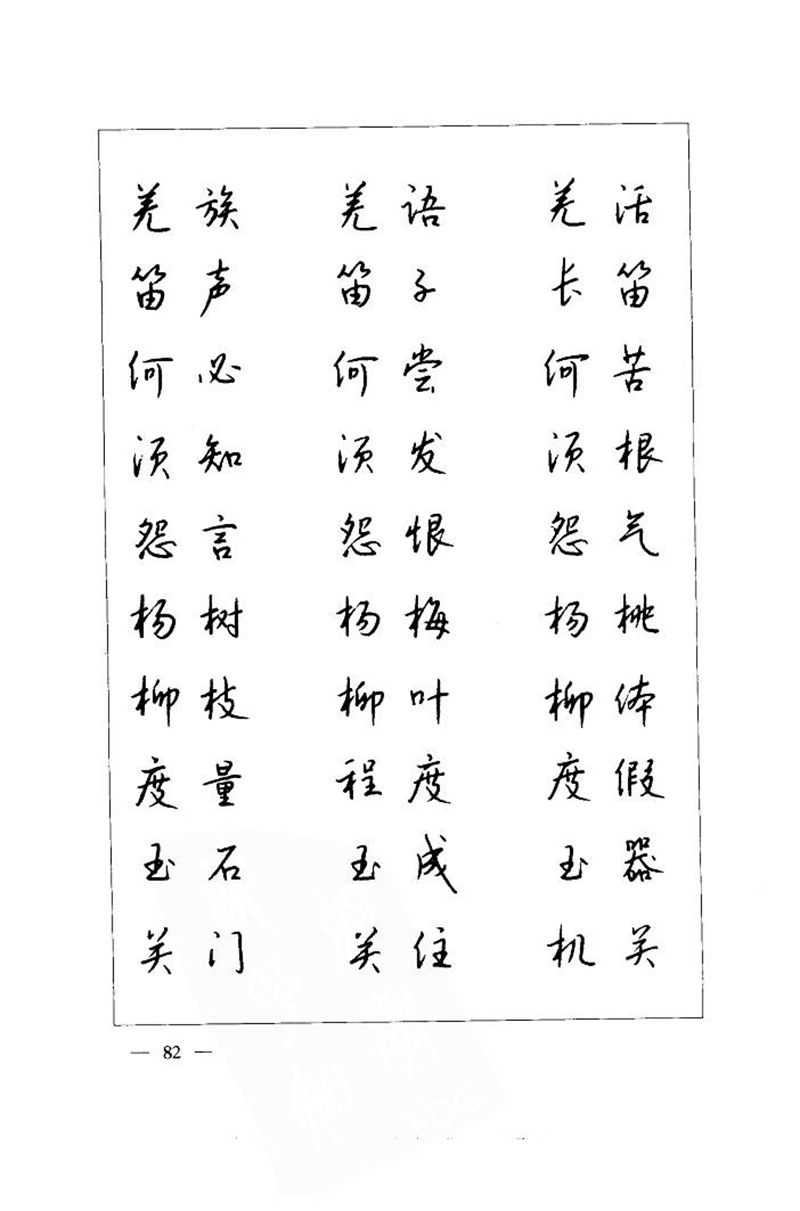 羌族 羌语 羌活
笛声 笛子 长笛
何必 何尝 何苦
须知 须发 须根
怨言 怨恨 怨气
杨树 杨梅 杨桃
柳枝 柳叶 柳体
度量 程度 度假
玉石 玉成 玉器
关门 关住 机关
— 82 —
PDG